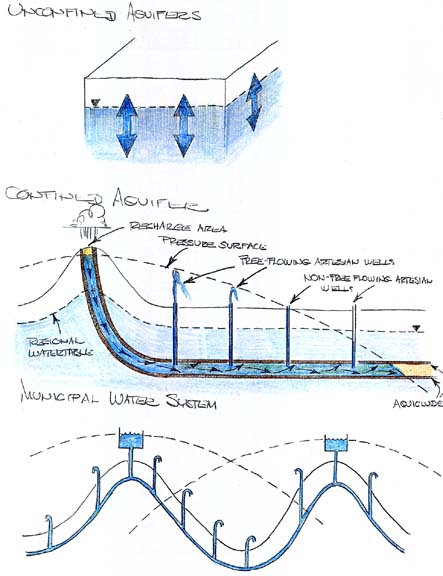 UNCONFINED AQUIFERS
CONFINED AQUIFER
RECHARGE AREA
PRESSURE SURFACE
FREE-FLOWING ARTESIAN WELLS
NON-FREE FLOWING ARTESIAN
WELLS
REGIONAL
WATERTABLE
AQUICLUDE
MUNICIPAL WATER SYSTEM